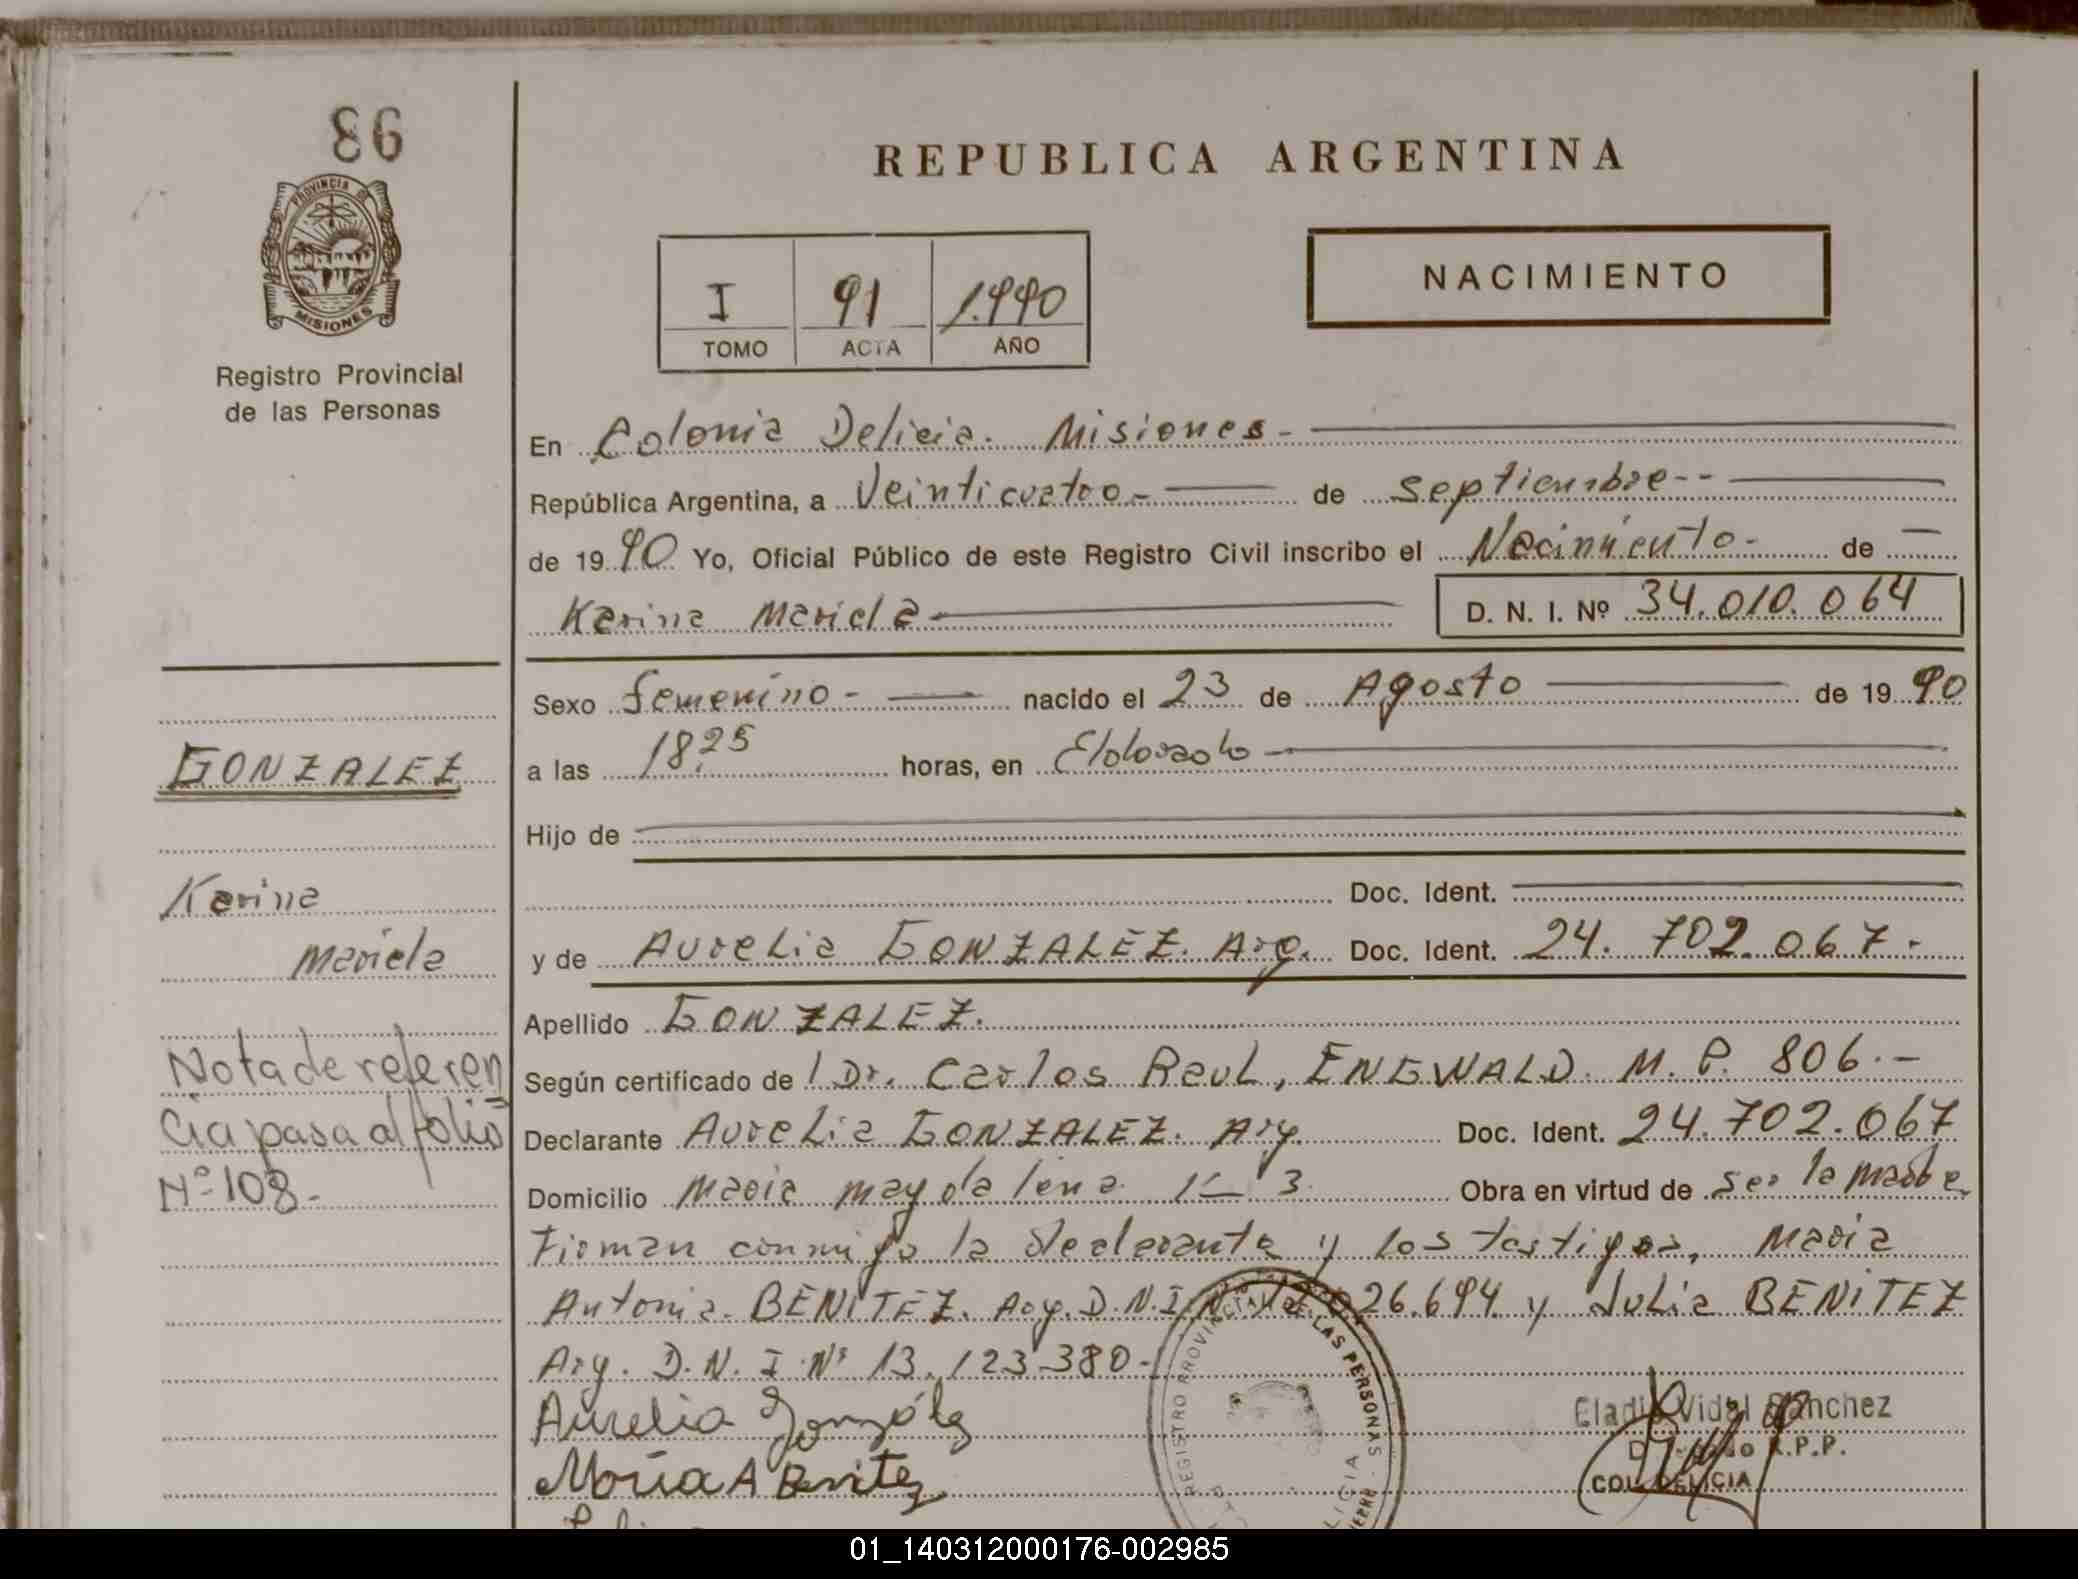 86
PROVINCIA DE
MISIONES
Registro Provincial
de las Personas
GONZALEZ
Karina
Mariela
Nota de referen
cia pasa al folio
Nº 108.-
REPUBLICA ARGENTINA
I 91 1.990
TOMO ACTA AÑO
NACIMIENTO
En Colonia Delicia. Misiones-
República Argentina, a Veinticuatro.- de septiembre--
de 1990 Yo, Oficial Público de este Registro Civil inscribo el Nacimiento- de —
Karina Mariela D. N. I. Nº 34.010.064
Sexo femenino- nacido el 23 de Agosto de 1990
a las 18,25 horas, en Eldorado
Hijo de
Doc. Ident.
y de Aurelia GONZALEZ. Arg. Doc. Ident. 24.702.067.-
Apellido GONZALEZ.
Según certificado de l Dr. Carlos Raul, ENGWALD. M.P. 806.-
Declarante Aurelia GONZALEZ. Arg. Doc. Ident. 24.702.067
Domicilio Maria Magdalena K 3 Obra en virtud de ser la madre
Firman conmigo la declarante y los testigos, Maria
Antonia BENITEZ. Arg. D.N.I. 026.694 y Julia BENITEZ
Arg. D.N.I Nº 13.123.380.-
Aurelia González
María A Benitez
REGISTRO PROVINCIAL DE LAS PERSONAS
Eladio Vidal Sanchez
R.P.P.
COL. DELICIA
01_140312000176-002985